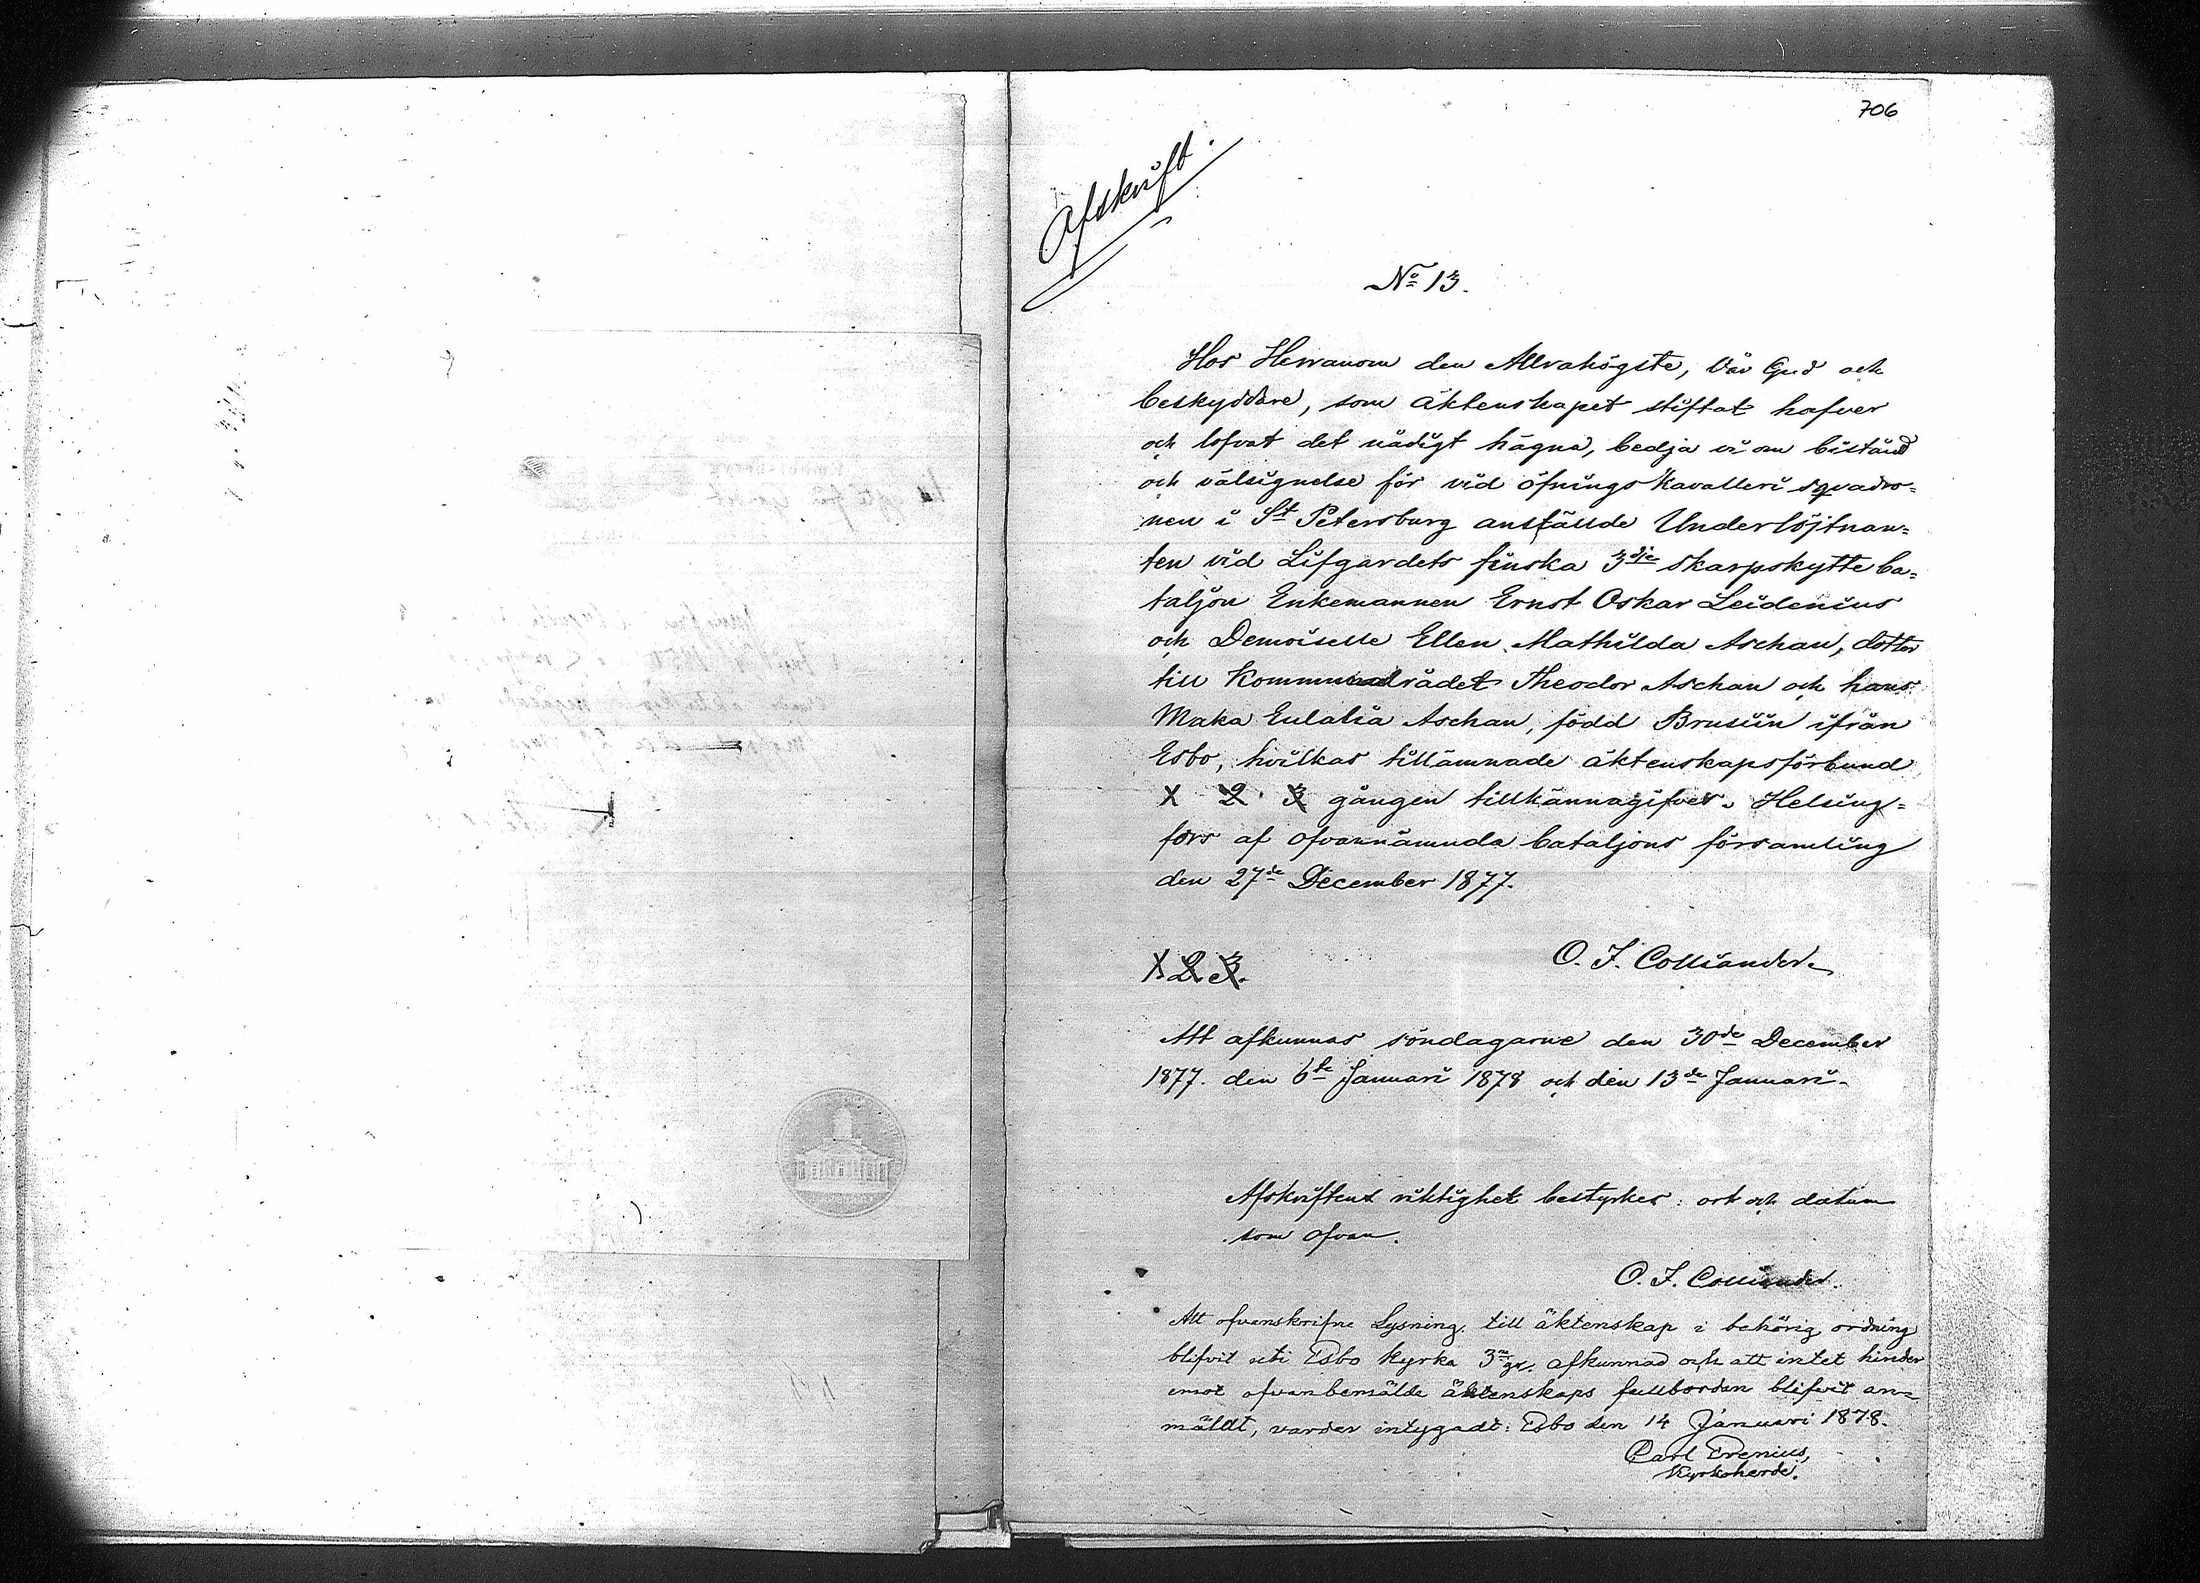 706
Afskrift.
No 13.
Hos Herranom den Allrahögste, Vår Gud och
beskyddare, som äktenskapet stiftat hafver
och lofvat det nådigt hägna, bedja vi om bistånd
och välsignelse för vid öfnings Kavalleri sqvadro=
nen i St Petersburg anstälde Underlöjtnan=
ten vid Lifgardets finska 3dje skarpskytte ba=
taljon Enkemannen Ernst Oskar Leidenius
och Demoiselle Ellen Mathilda Aschan, dotter
till Kommunalrådet Theodor Aschan och hans
Maka Eulalia Aschan, född Brusiin ifrån
Esbo, hvilkas tillämnade äktenskapsförbund
X 2 3 gången tillkännagifves. Helsing=
fors af ofvannämnda bataljons församling
den 27de December 1877.
O. F. Colliander.
X 2 3.
Att afkunnas söndagarne den 30de December
1877. den 6te Januari 1878 och den 13de Januari.
Afskriftens riktighet bestyrkes: ort och datum
som ofvan.
O. F. Colliander.
Att ofvanskrifne Lysning till äktenskap i behörig ordning
blifvit uti Esbo kyrka 3ne gr. afkunnad och att intet hinder
emot ofvanbemälde äktenskaps fullbordan blifvit an=
mäldt, varder intygadt: Esbo den 14 Januari 1878.
Carl Erenius,
Kyrkoherde.